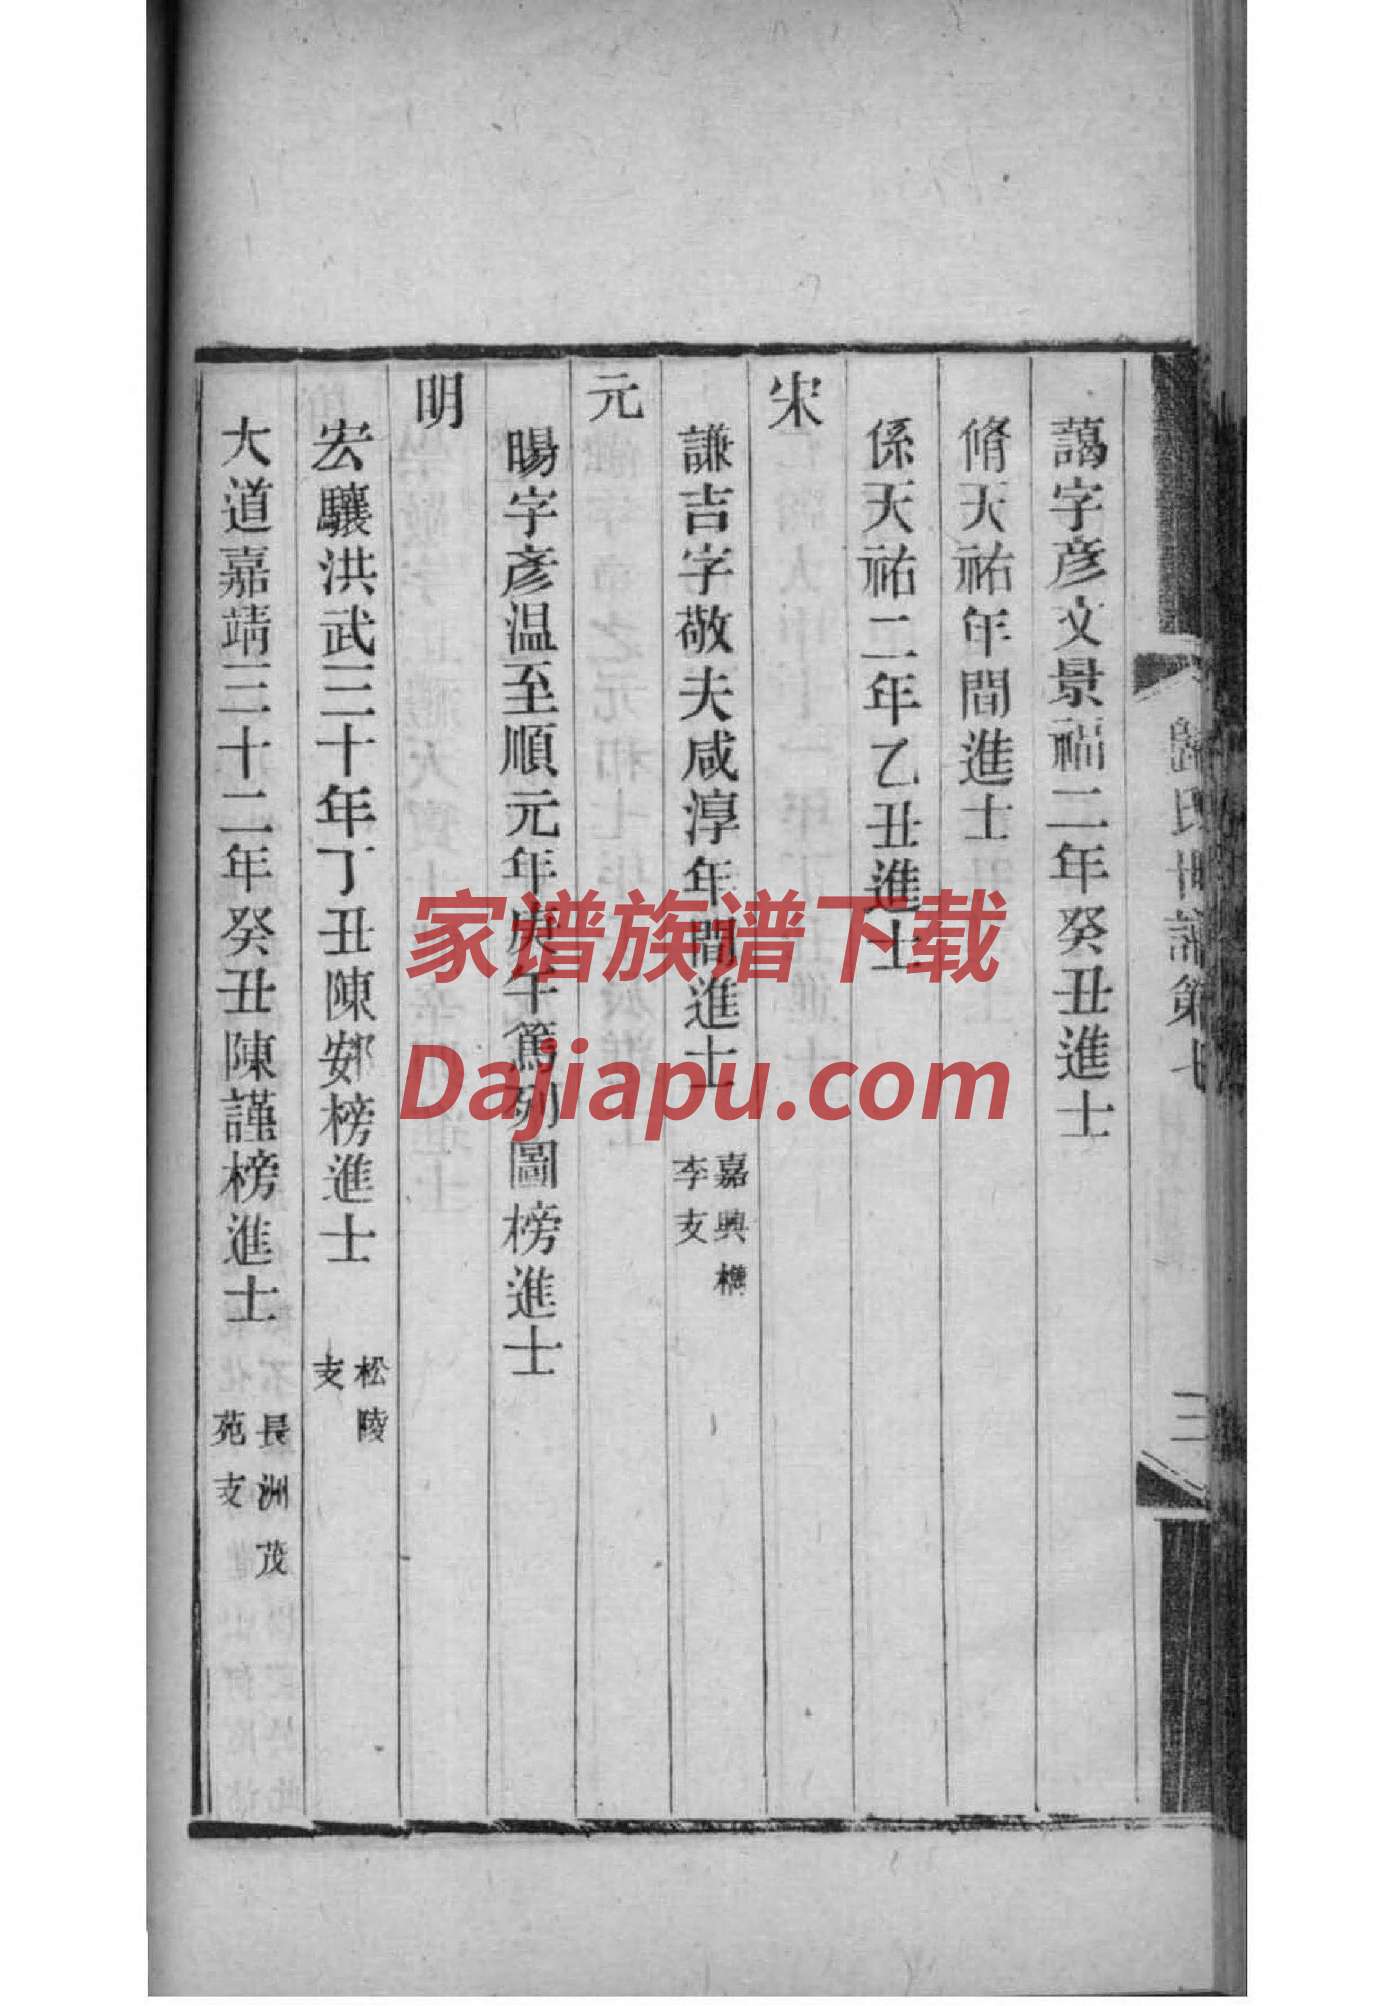 藹字彥文景福二年癸丑進士
脩天祐年間進士
係天祐二年乙丑進士
宋
謙吉字敬夫咸淳年間進士 嘉興檇李支
元
暘字彥温至順元年庚午篤列圖榜進士
明
宏驤洪武三十年丁丑陳䢿榜進士 松陵支
大道嘉靖三十二年癸丑陳謹榜進士 長洲茂苑支
歸氏世譜第七
三
家谱族谱下载
Dajiapu.com